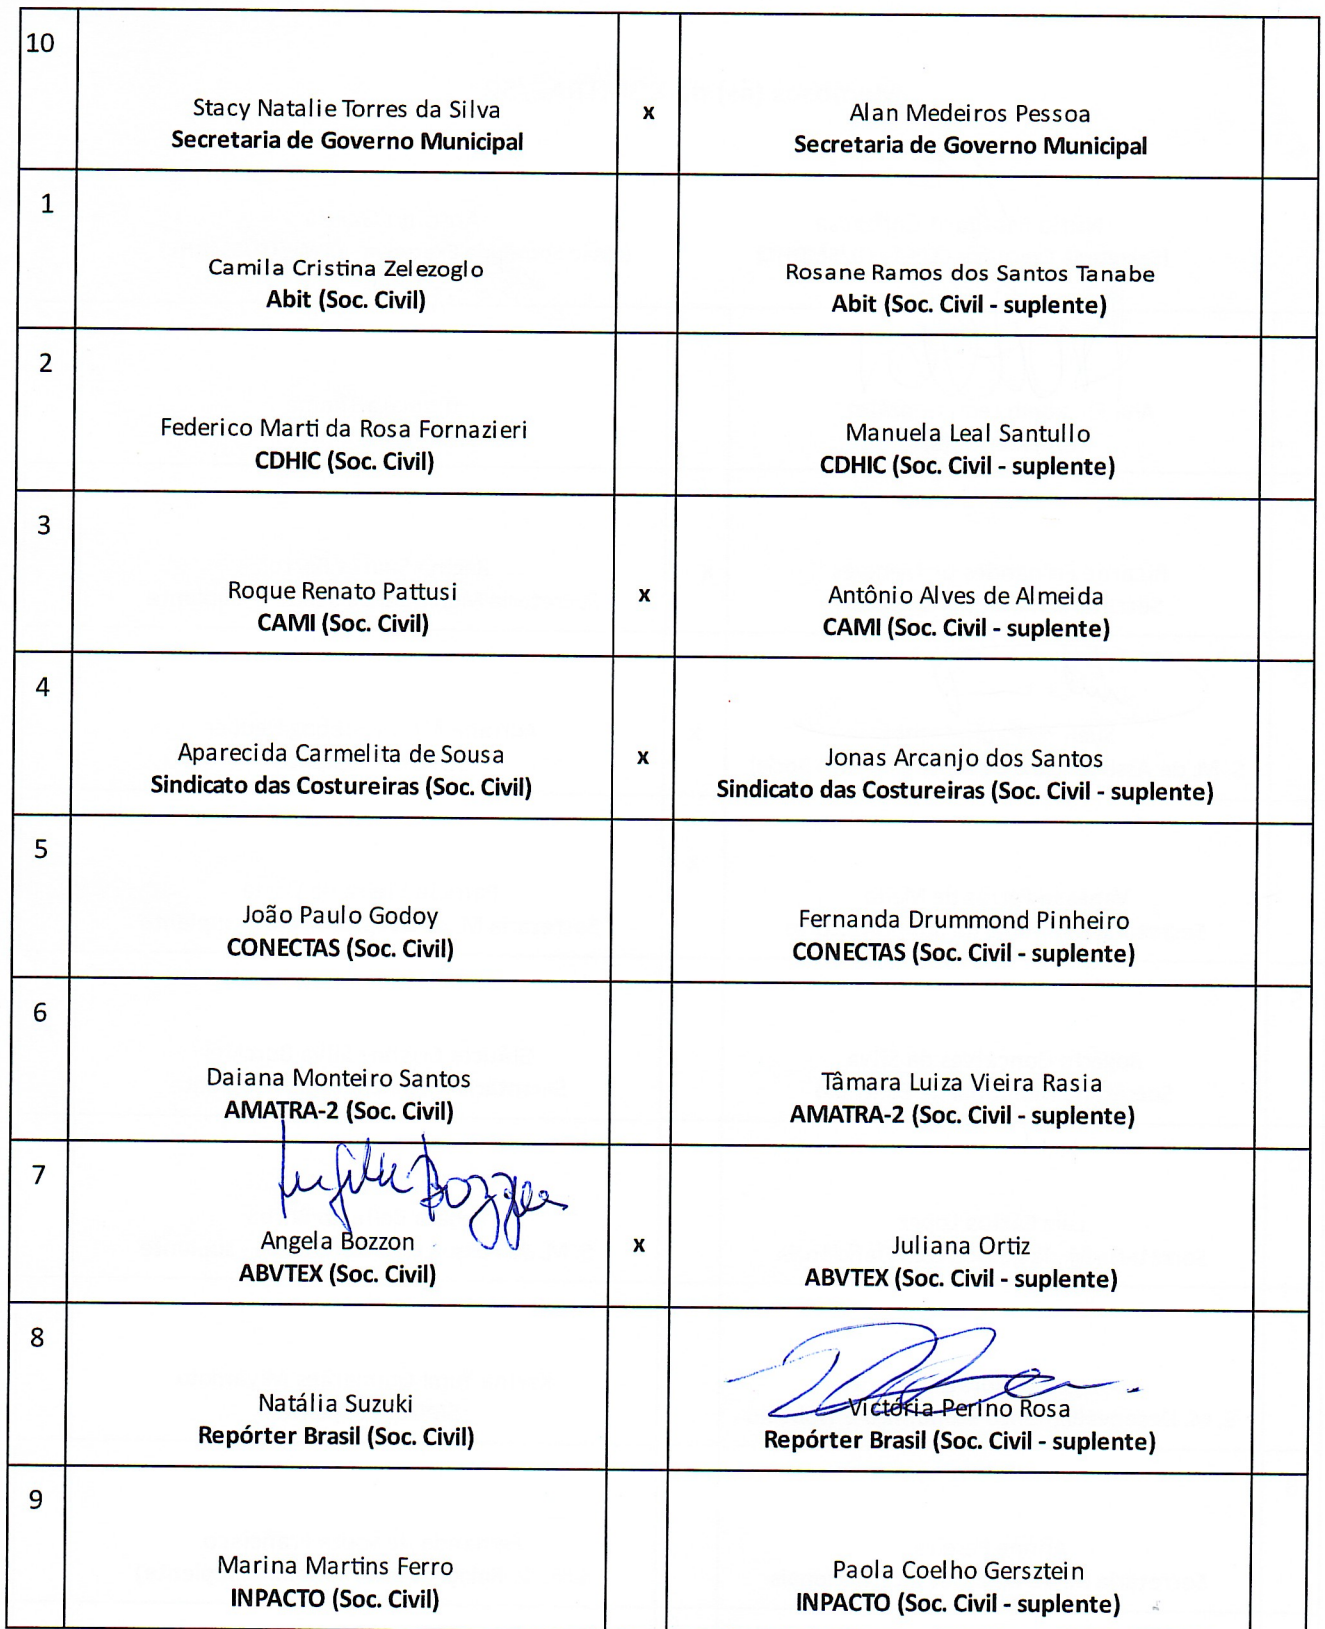 10
Stacy Natalie Torres da Silva
Secretaria de Governo Municipal
x
Alan Medeiros Pessoa
Secretaria de Governo Municipal
1
Camila Cristina Zelezoglo
Abit (Soc. Civil)
Rosane Ramos dos Santos Tanabe
Abit (Soc. Civil - suplente)
2
Federico Marti da Rosa Fornazieri
CDHIC (Soc. Civil)
Manuela Leal Santullo
CDHIC (Soc. Civil - suplente)
3
Roque Renato Pattusi
CAMI (Soc. Civil)
x
Antônio Alves de Almeida
CAMI (Soc. Civil - suplente)
4
Aparecida Carmelita de Sousa
Sindicato das Costureiras (Soc. Civil)
x
Jonas Arcanjo dos Santos
Sindicato das Costureiras (Soc. Civil - suplente)
5
João Paulo Godoy
CONECTAS (Soc. Civil)
Fernanda Drummond Pinheiro
CONECTAS (Soc. Civil - suplente)
6
Daiana Monteiro Santos
AMATRA-2 (Soc. Civil)
Tâmara Luiza Vieira Rasia
AMATRA-2 (Soc. Civil - suplente)
7
Angela Bozzon
ABVTEX (Soc. Civil)
x
Juliana Ortiz
ABVTEX (Soc. Civil - suplente)
8
Natália Suzuki
Repórter Brasil (Soc. Civil)
Victória Perino Rosa
Repórter Brasil (Soc. Civil - suplente)
9
Marina Martins Ferro
INPACTO (Soc. Civil)
Paola Coelho Gersztein
INPACTO (Soc. Civil - suplente)